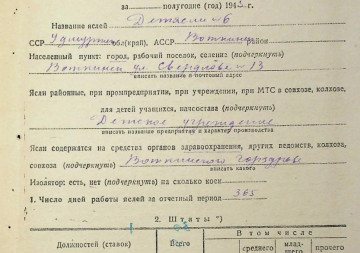 за полугодие (год) 194 г.
Название яслей Детясли №6
ССР Удмуртск обл(край), АССР Воткинск район
Населенный пункт: город, рабочий поселок, селение (подчеркнуть)
Воткинск ул. Свердлова №13
вписать название и почтовый адрес
Ясли районные, при промпредприятии, при учреждении, при МТС в совхозе, колхозе,
для детей учащихся, начсостава (подчеркнуть)
Детское учреждение
вписать название предприятия и характер производства
Ясли содержатся на средства органов здравоохранения, других ведомств, колхоза,
совхоза (подчеркнуть) Воткинского горздрав
вписать какого
Изолятор: есть, нет (подчеркнуть) на сколько коек
1. Число дней работы яслей за отчетный период 365
2. Штаты
Должностей (ставок) Всего В том числе
среднего млад- прочего